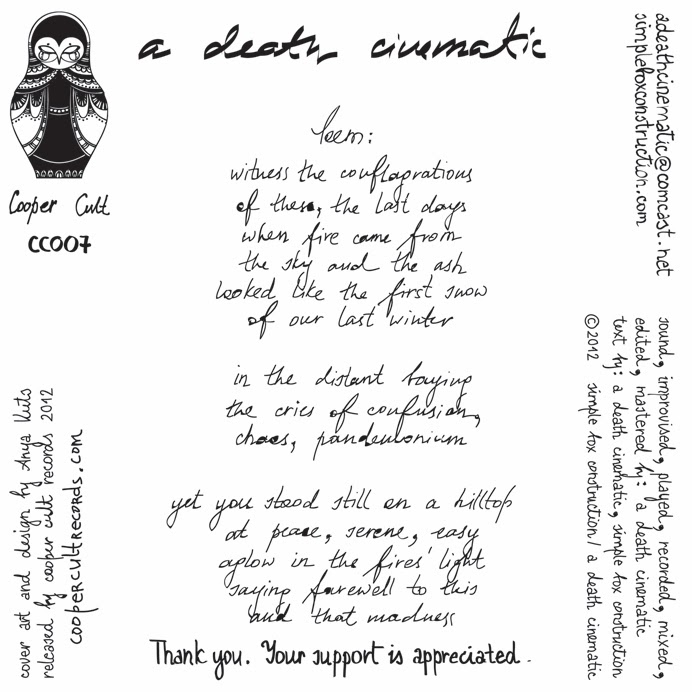 a death cinematic
Cooper Cult
CC007
poem:
witness the conflagrations
of these, the last days
when fire came from
the sky and the ash
looked like the first snow
of our last winter
in the distant baying
the cries of confusion,
chaos, pandemonium
yet you stood still on a hilltop
at peace, serene, easy
aglow in the fires' light
saying farewell to this
and that madness
Thank you. Your support is appreciated.
cover art and design by Anya Kuts
released by cooper cult records 2012
coopercultrecords.com
adeathcinematic@comcast.net
simpleboxconstruction.com
sound, improvised, played, recorded, mixed,
edited, mastered by: a death cinematic
text by: a death cinematic, simple box construction
©2012 simple box construction/ a death cinematic